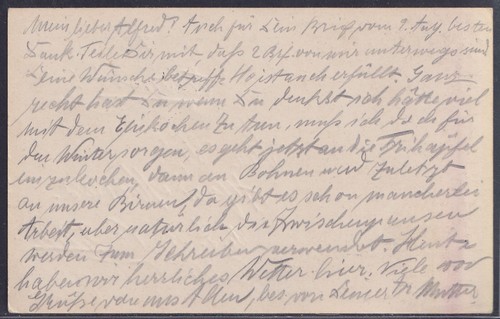 Mein lieber Alfred! Auch für Dein Brief vom 9. Aug. besten
Dank. Teile Dir mit, daß 2 Brf. von mir unterwegs sind
Deine Wünsche betreff. ist auch erfüllt. Ganz
recht hast Du, wenn Du denkst ich hätte viel
mit dem Einkochen zu tun, muß ich doch für
den Winter sorgen, es geht jetzt an die
einzukochen, dann an Bohnen und zuletzt
an unsere Birnen, da gibt es schon mancherlei
Arbeit, aber natürlich die Zwischenpausen
werden zum Schreiben verwendet. Heute
haben wir herrliches Wetter hier. Viele
Grüße von uns Allen, bes. von Deiner Mutter